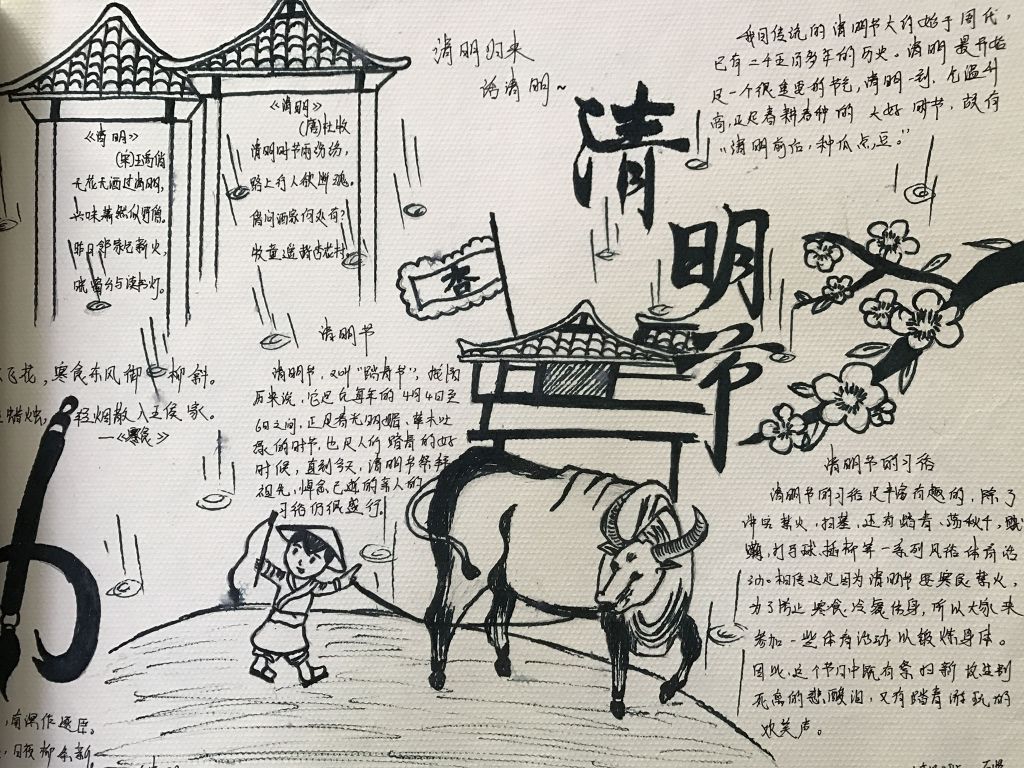 《清明》
(宋)王禹偁
无花无酒过清明,
兴味萧然似野僧。
昨日邻家乞新火,
晓窗分与读书灯。
《清明》
(唐)杜牧
清明时节雨纷纷,
路上行人欲断魂。
借问酒家何处有?
牧童遥指杏花村。
清明归来
话清明~
清
明
节
我国传统的清明节大约始于周代,
已有二千五百多年的历史。清明最开始
是一个很重要的节气,清明一到,气温升
高,正是春耕春种的大好时节,故有
“清明前后,种瓜点豆。”
杏
清明节
清明节,又叫“踏青节”,按阳
历来说,它是在每年的4月4日至
6日之间,正是春光明媚、草木吐
绿的时节,也是人们踏青的好
时候,直到今天,清明节祭拜
祖先,悼念已逝的亲人的
习俗仍很盛行。
飞花,寒食东风御柳斜。
蜡烛,轻烟散入五侯家。
—《寒食》
清明节的习俗
清明节的习俗是丰富有趣的,除了
讲究禁火、扫墓,还有踏青、荡秋千、蹴
鞠、打马球、插柳等一系列风俗体育活
动。相传这是因为清明节要寒食禁火,
为了防止寒食冷餐伤身,所以大家来
参加一些体育活动以锻炼身体。
因此,这个节日中既有祭扫新坟生别
死离的悲酸泪,又有踏青游玩的
欢笑声。